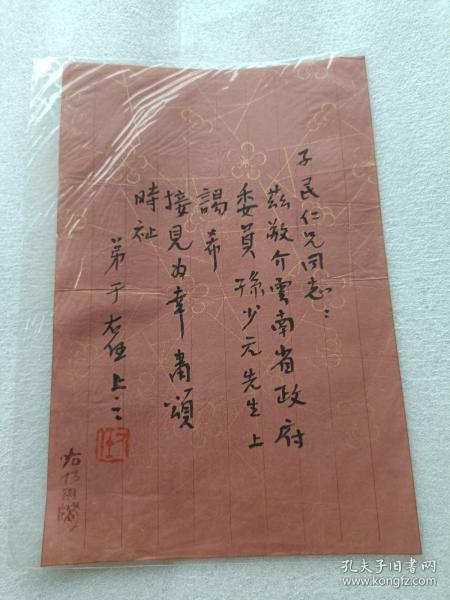 子民仁兄同志：
茲敬介雲南省政府
委員孫少元先生上
謁希
接見为幸 肅頌
時祉
弟于右任上
孔夫子旧书网
www.kongfz.com